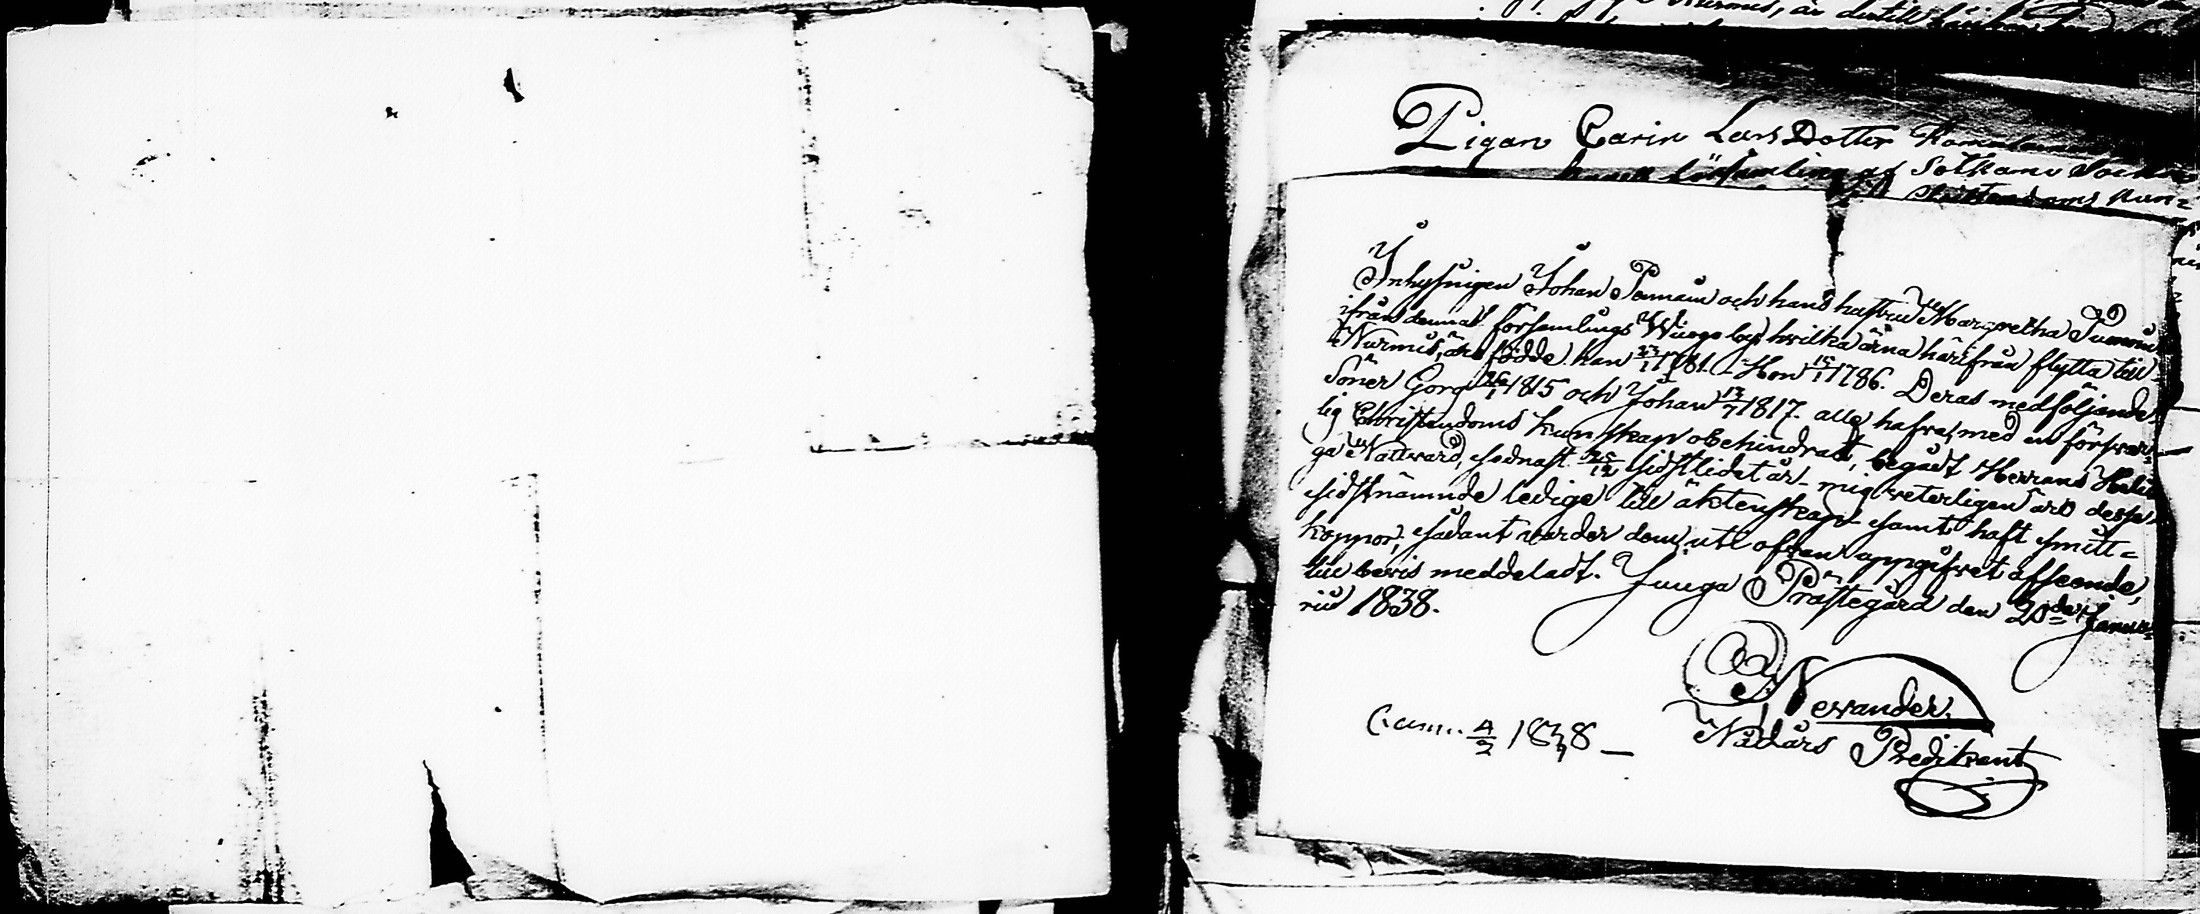 Nurmis, är dertill
Pigan Carin Lars Dotter
församling af Sotkamo Sockn
Christendoms kun=
Inhysingen Johan Pennain och hans hustru Margretha
ifrån denna församlings by hvilka ärna härifrån flytta till
Nurmis, äro födde han 1781. Hon 15/1 1786. Deras medföljande
Söner Görg 26/1 1815 och Johan 13/7 1817. alla hafva, med en försvar=
lig Christendoms kunskap obehindradt, begådt Herrans Heli=
ga Nattvard, sednast 25/12 sidstlidet år. mig veterligen äro desse
sidstnämnde ledige till äktenskap samt haft smitt=
koppor, sådant varder dem, uti ofvan uppgifvet afseende,
till bevis meddeladt. Juuga Prästegård den 20de Janua=
rii 1838.
Nevander.
Nådårs Predikant
4/2 1838